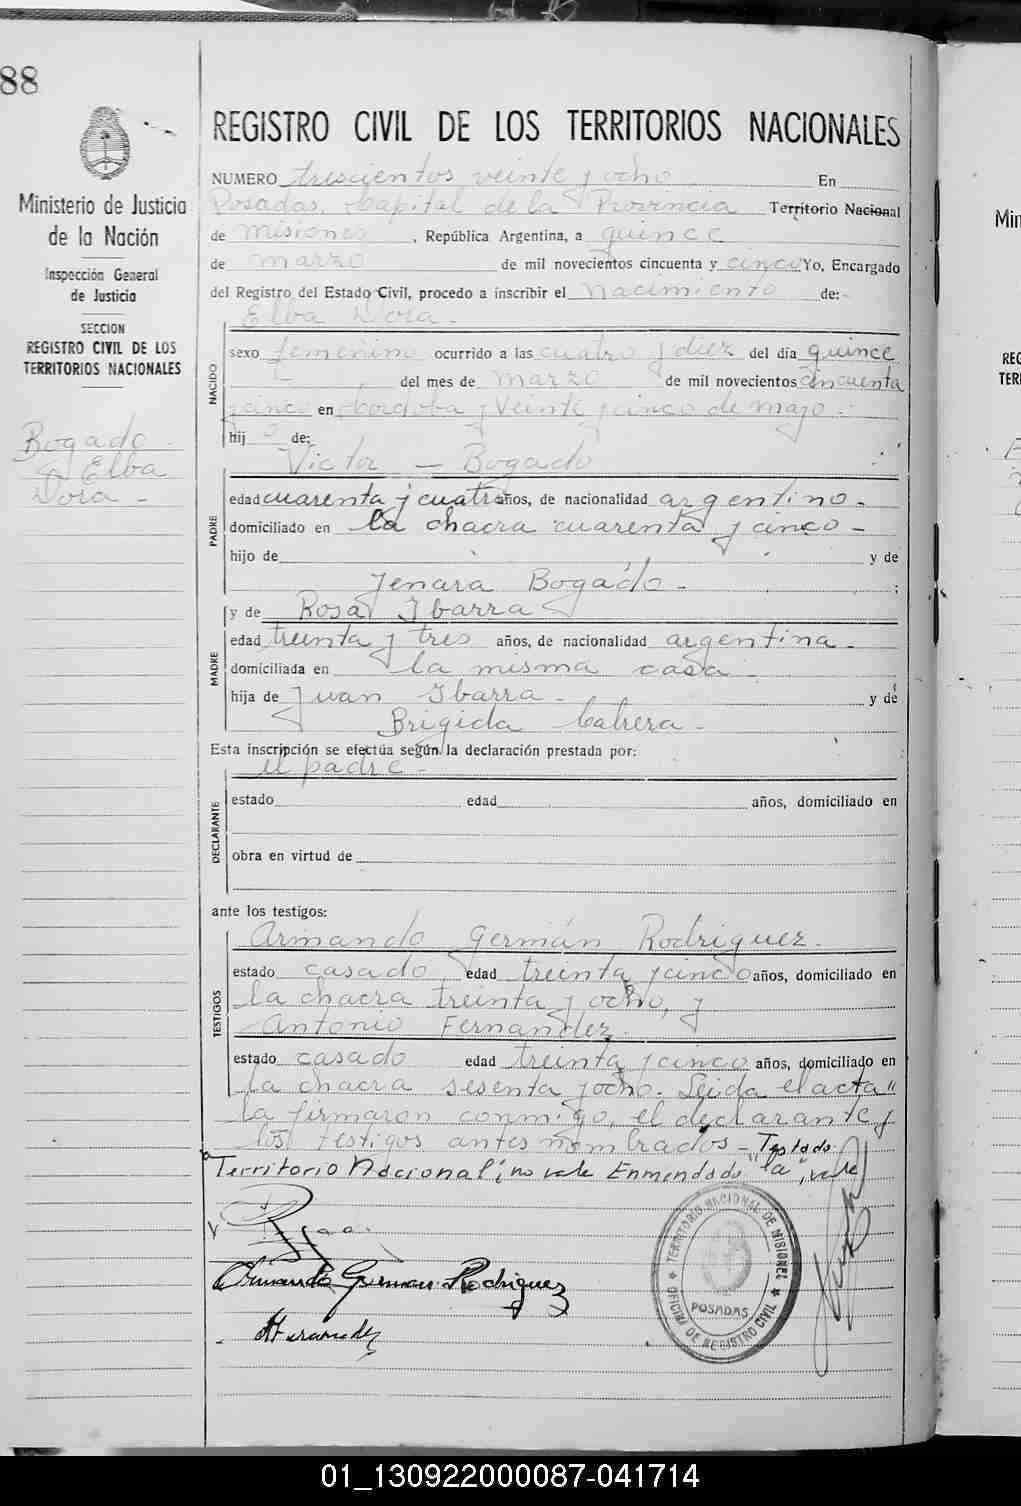 88
REGISTRO CIVIL DE LOS TERRITORIOS NACIONALES
Ministerio de Justicia
de la Nación
Inspección General
de Justicia
SECCION
REGISTRO CIVIL DE LOS
TERRITORIOS NACIONALES
Bogado
Elba
Dora -
NUMERO trescientos veinte y ocho En
Posadas, Capital de la Provincia Territorio Nacional
de Misiones, República Argentina, a quince
de marzo de mil novecientos cincuenta y cinco Yo, Encargado
del Registro del Estado Civil, procedo a inscribir el Nacimiento de:-
Elba Dora -
NACIDO
sexo femenino ocurrido a las cuatro y diez del día quince
del mes de marzo de mil novecientos cincuenta
y cinco en Cordoba y Veinte y cinco de mayo -
hij a de:
Victor - Bogado
PADRE
edad cuarenta y cuatro años, de nacionalidad argentino -
domiciliado en la chacra cuarenta y cinco -
hijo de y de
Jenara Bogado - ;
y de Rosa Ibarra
MADRE
edad treinta y tres años, de nacionalidad argentina -
domiciliada en la misma casa -
hija de Juan Ibarra - y de
Brigida Cabrera -
Esta inscripción se efectúa según la declaración prestada por:
el padre -
DECLARANTE
estado edad años, domiciliado en
obra en virtud de
ante los testigos:
TESTIGOS
Armando Germán Rodriguez.
estado casado edad treinta y cinco años, domiciliado en
la chacra treinta y ocho, y
Antonio Fernandez
estado casado edad treinta y cinco años, domiciliado en
la chacra sesenta y ocho. Leida el acta
la firmaron conmigo, el declarante y
los testigos antes nombrados - Testado:
Territorio Nacional; no vale Enmendado "la", vale
Armando German Rodriguez
TERRITORIO NACIONAL DE MISIONES
POSADAS
OFICINA DE REGISTRO CIVIL
Min
REG
TER
01_130922000087-041714